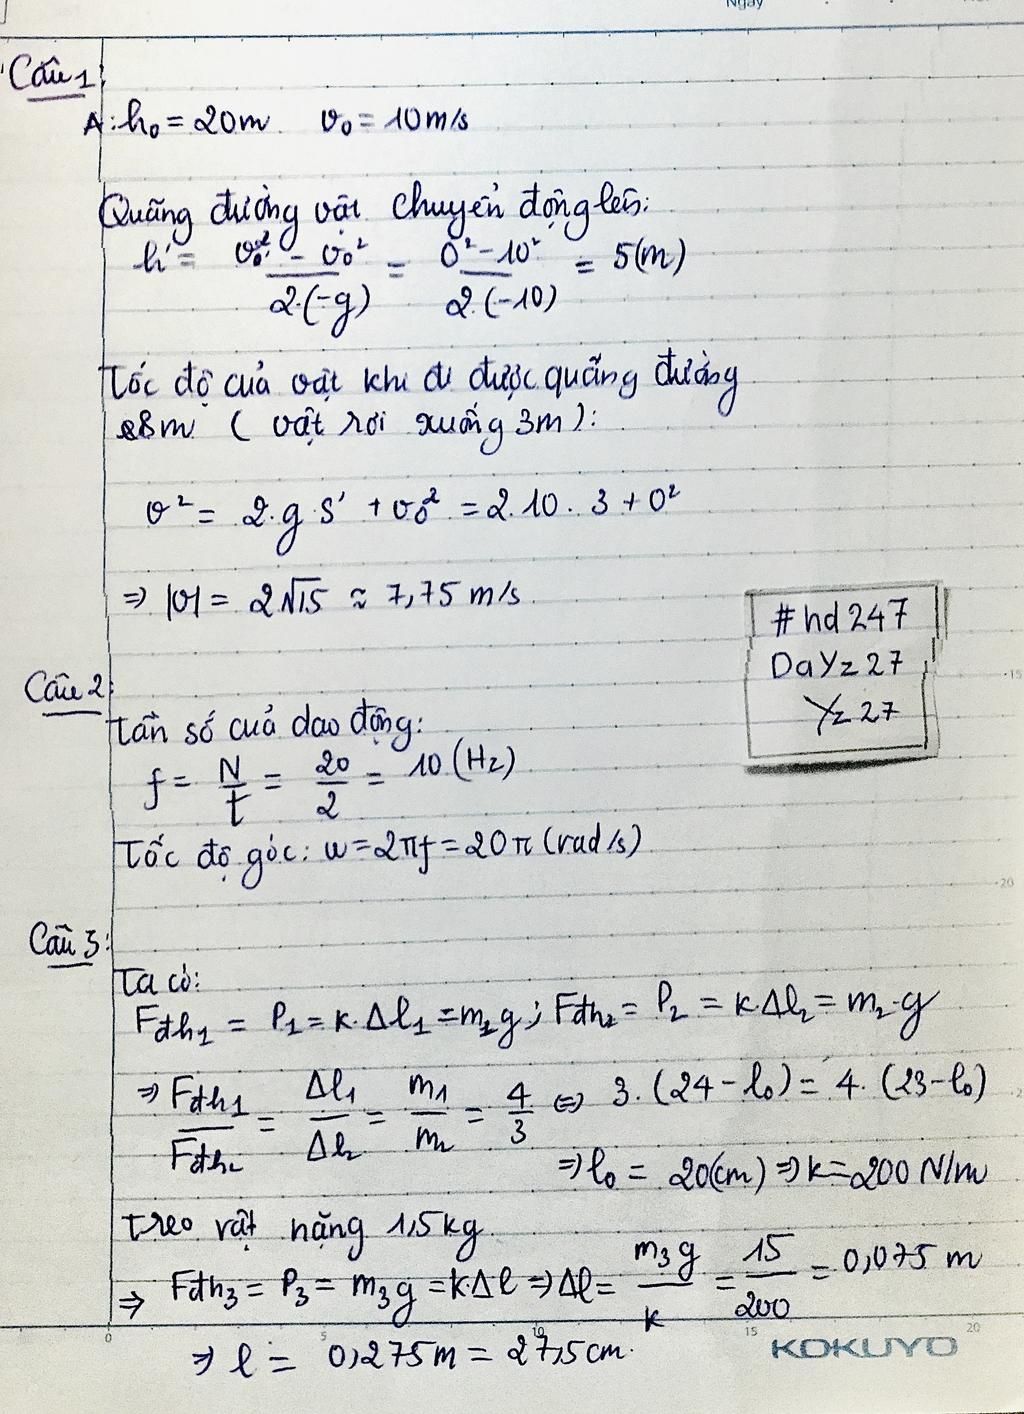 Ngày
Câu 1
A: h₀ = 20m v₀ = 10 m/s
Quãng đường vật chuyển động lên:
h' = (v² - v₀²)/(2.(-g)) = (0² - 10²)/(2.(-10)) = 5(m)
Tốc độ của vật khi đi được quãng đường
8m (vật rơi xuống 3m):
v² = 2.g.s' + v₀² = 2.10.3 + 0²
⇒ |v| = 2√15 ≈ 7,75 m/s
#hd247
DaYz27
Yz27
Câu 2:
Tần số của dao động:
f = N/t = 20/2 = 10 (Hz)
Tốc độ góc: ω = 2πf = 20π (rad/s)
Câu 3:
Ta có:
Fđh₁ = P₁ = k.Δl₁ = m₁g; Fđh₂ = P₂ = k.Δl₂ = m₂.g
⇒ Fđh₁/Fđh₂ = Δl₁/Δl₂ = m₁/m₂ = 4/3 ⇔ 3.(24 - l₀) = 4.(23 - l₀)
⇒ l₀ = 20(cm) ⇒ k = 200 N/m
Treo vật nặng 1,5kg
⇒ Fđh₃ = P₃ = m₃g = k.Δl ⇒ Δl = m₃g/k = 15/200 = 0,075 m
⇒ l = 0,275m = 27,5cm.
0 5 10 15 20
KOKUYO
15
20